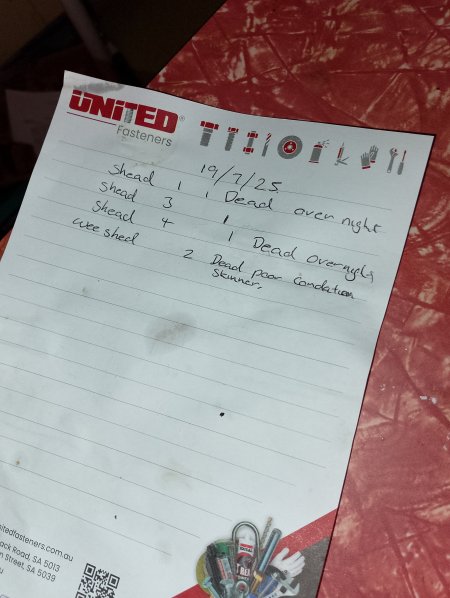 UNITED®
Fasteners
19/7/25
Shead 1 1 Dead over night
Shead 3 1
Shead 4 1 Dead overnight
wee shed 2 Dead poor Condation
Skinner,
nitedfasteners.com.au
ack Road, SA 5013
n Street, SA 5039
u